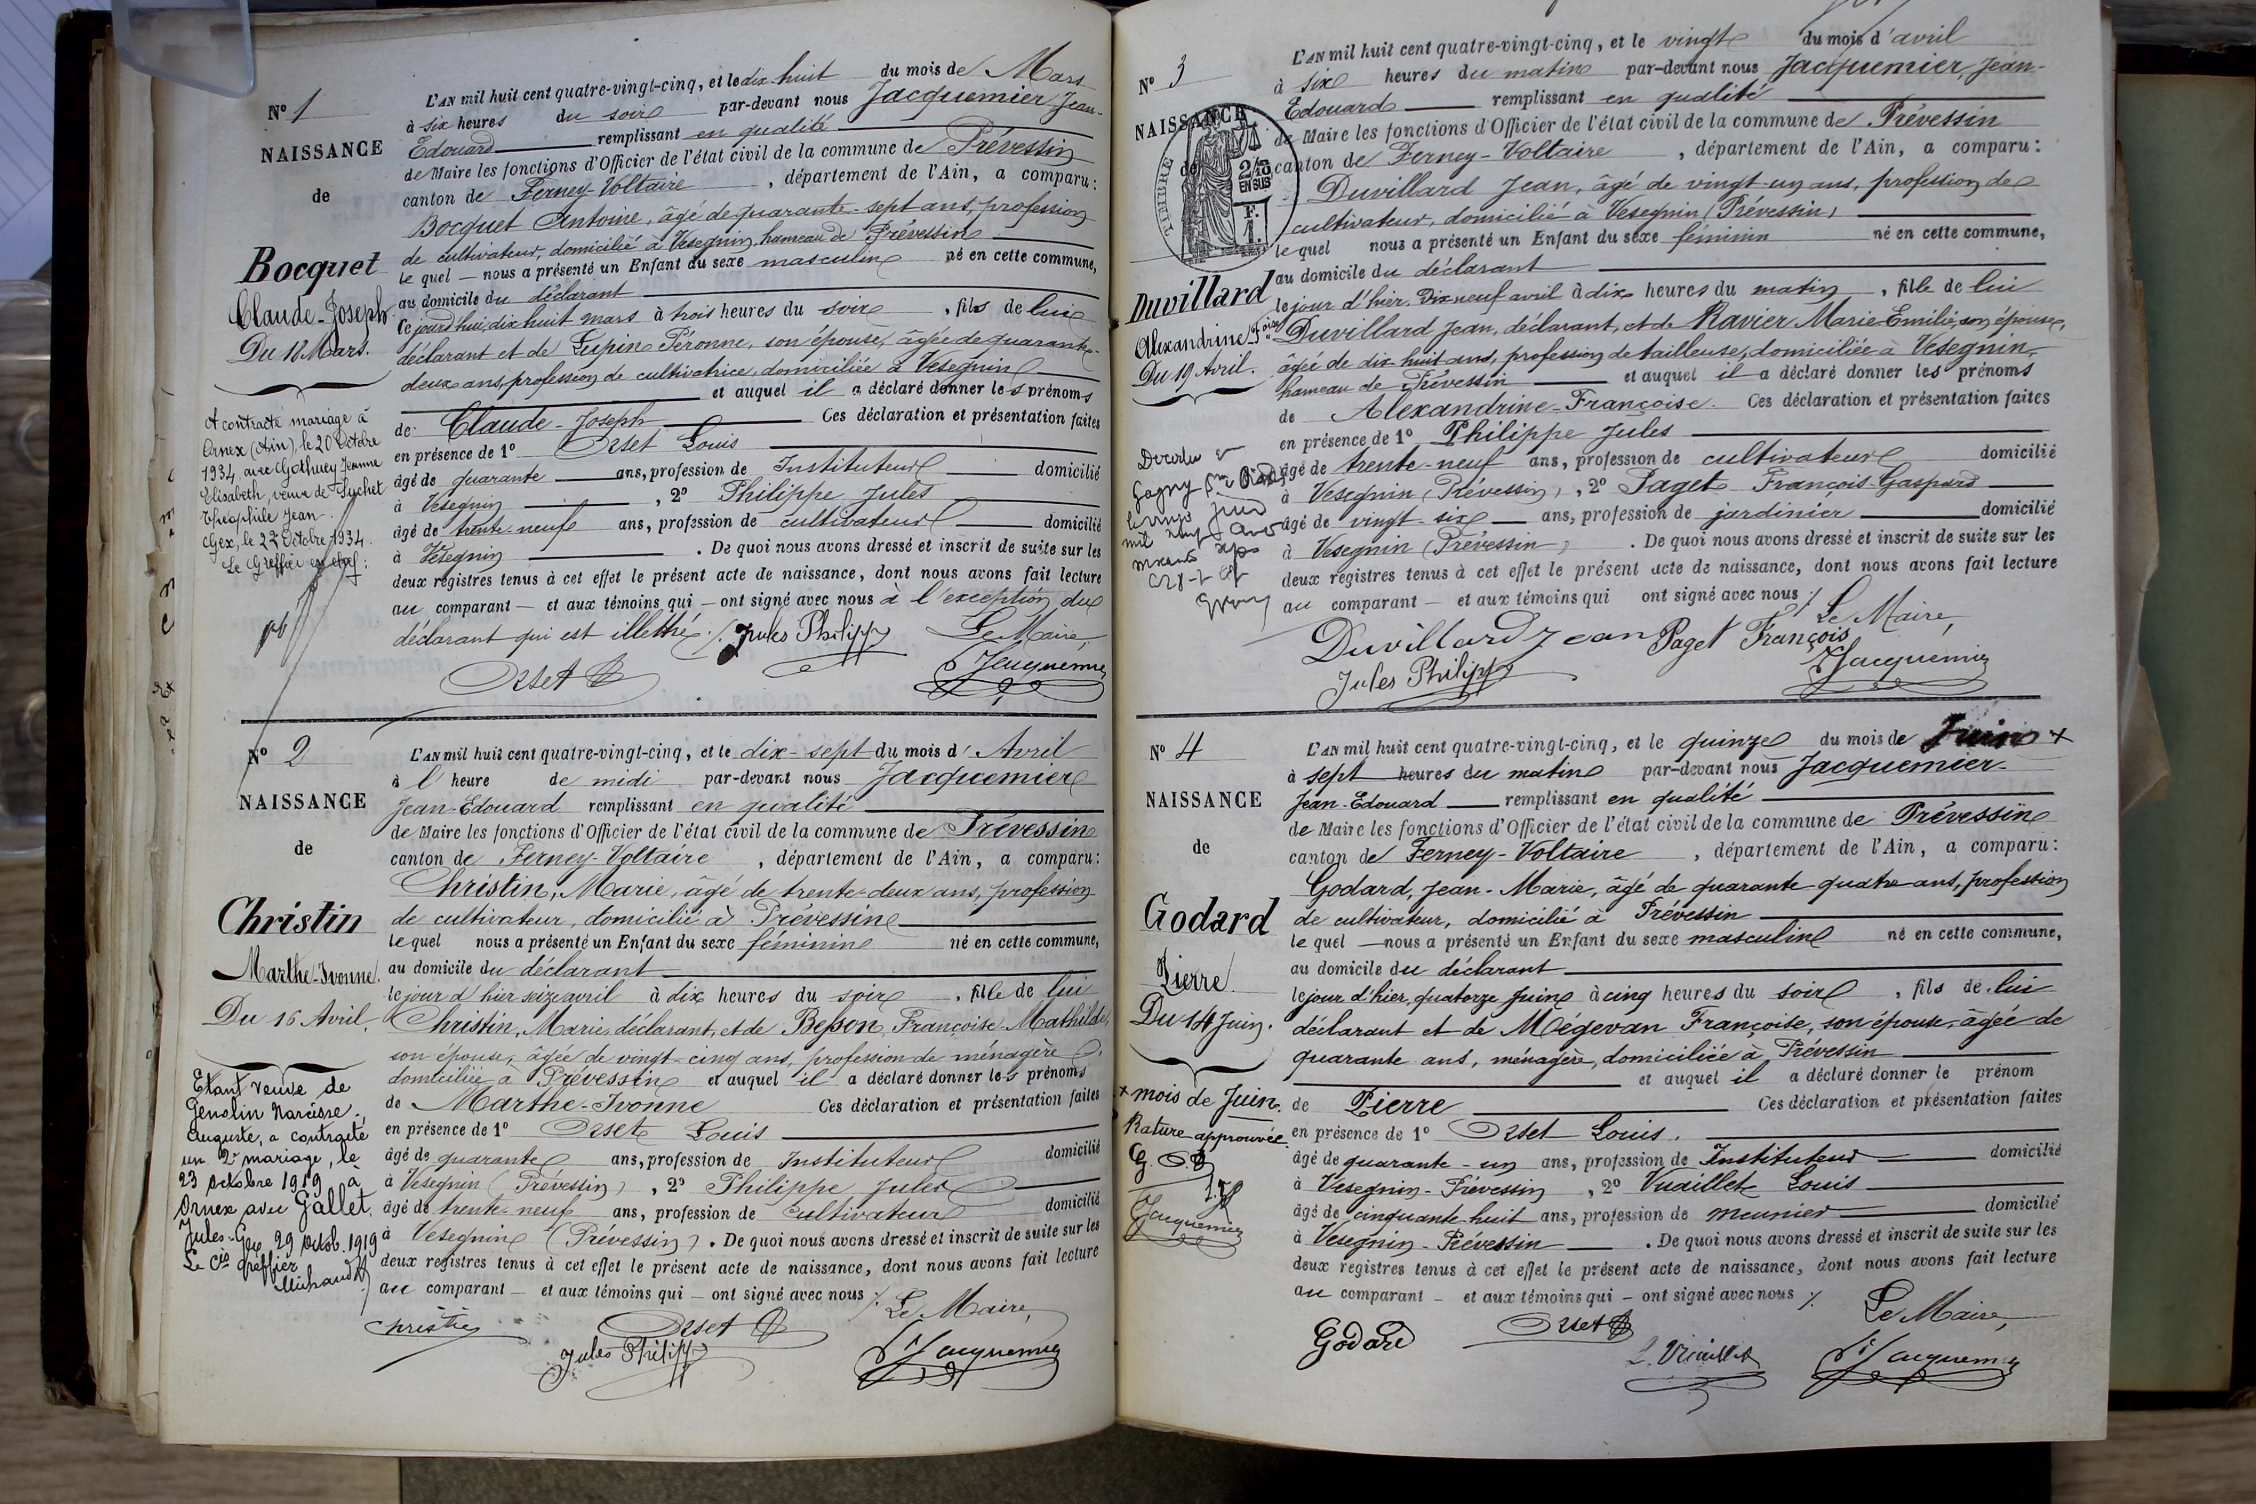 N° 1
NAISSANCE
de
Bocquet
Claude-Joseph
Du 18 Mars.
A contracté mariage à
Ornex (Ain), le 20 Octobre
1934, avec Gothuey Jeanne
Elisabeth, veuve de Suchet
Théophile Jean.
Gex, le 22 Octobre 1934.
Le Greffier en chef:
L'AN mil huit cent quatre-vingt-cinq, et le dix huit du mois de Mars
à six heures du soir par-devant nous Jacquemier Jean-
Edouard remplissant en qualité
de Maire les fonctions d'Officier de l'état civil de la commune de Prévessin
canton de Ferney-Voltaire, département de l'Ain, a comparu:
Bocquet Antoine, âgé de quarante-sept ans, profession
de cultivateur, domicilié à Vesegnin hameau de Prévessin
lequel — nous a présenté un Enfant du sexe masculin né en cette commune,
au domicile du déclarant
ce jourd'hui, dix huit mars à trois heures du soir, fils de lui
déclarant et de Lupin Péronne, son épouse, âgée de quarante-
deux ans, profession de cultivatrice, domiciliée à Vesegnin
et auquel il a déclaré donner les prénoms
de Claude-Joseph Ces déclaration et présentation faites
en présence de 1° Orset Louis
âgé de quarante ans, profession de Instituteur domicilié
à Vesegnin, 2° Philippe Jules
âgé de trente-neuf ans, profession de cultivateur domicilié
à Vesegnin. De quoi nous avons dressé et inscrit de suite sur les
deux registres tenus à cet effet le présent acte de naissance, dont nous avons fait lecture
au comparant — et aux témoins qui — ont signé avec nous à l'exception du
déclarant qui est illettré ./. Jules Philipp Le Maire,
Orset Jacquemier
N° 2
NAISSANCE
de
Christin
Marthe-Ivonne.
Du 16 Avril.
Etant veuve de
Genolin Narcisse
Auguste, a contracté
un 2e mariage, le
23 Octobre 1919 à
Ornex avec Gallet
Jules
Gex 29 Octob. 1919
Le Cis greffier
Michaud
L'AN mil huit cent quatre-vingt-cinq, et le dix-sept du mois d'Avril
à l'heure de midi par-devant nous Jacquemier
Jean-Edouard remplissant en qualité
de Maire les fonctions d'Officier de l'état civil de la commune de Prévessin
canton de Ferney-Voltaire, département de l'Ain, a comparu:
Christin, Marie, âgé de trente-deux ans, profession
de cultivateur, domicilié à Prévessin
lequel nous a présenté un Enfant du sexe féminin né en cette commune,
au domicile du déclarant
le jour d'hier seize avril à dix heures du soir, fille de lui
Christin, Marie, déclarant, et de Besson, Françoise Mathilde,
son épouse, âgée de vingt-cinq ans, profession de ménagère
domiciliée à Prévessin et auquel il a déclaré donner les prénoms
de Marthe-Ivonne Ces déclaration et présentation faites
en présence de 1° Orset Louis
âgé de quarante ans, profession de Instituteur domicilié
à Vesegnin (Prévessin), 2° Philippe Jules
âgé de trente-neuf ans, profession de cultivateur domicilié
à Vesegnin (Prévessin). De quoi nous avons dressé et inscrit de suite sur les
deux registres tenus à cet effet le présent acte de naissance, dont nous avons fait lecture
au comparant — et aux témoins qui — ont signé avec nous ./. Le Maire,
Christin Orset
Jules Philipp Jacquemier
N° 3
NAISSANCE
de
TIMBRE
2/10
EN SUS
F.
1.
Duvillard
Alexandrine-Foise
Du 19 Avril.
Gagny
L'AN mil huit cent quatre-vingt-cinq, et le vingt du mois d'avril
à six heures du matin par-devant nous Jacquemier, Jean-
Edouard remplissant en qualité
de Maire les fonctions d'Officier de l'état civil de la commune de Prévessin
canton de Ferney-Voltaire, département de l'Ain, a comparu:
Duvillard Jean, âgé de vingt-un ans, profession de
cultivateur, domicilié à Vesegnin (Prévessin)
lequel nous a présenté un Enfant du sexe féminin né en cette commune,
au domicile du déclarant
le jour d'hier. Dix-neuf avril à dix heures du matin, fille de lui
Duvillard Jean, déclarant, et de Ravier Marie-Emilie, son épouse,
âgée de dix-huit ans, profession de tailleuse, domiciliée à Vesegnin,
hameau de Prévessin et auquel il a déclaré donner les prénoms
de Alexandrine-Françoise. Ces déclaration et présentation faites
en présence de 1° Philippe Jules
âgé de trente-neuf ans, profession de cultivateur domicilié
à Vesegnin (Prévessin), 2° Paget François-Gaspard
âgé de vingt-six ans, profession de jardinier domicilié
à Vesegnin (Prévessin). De quoi nous avons dressé et inscrit de suite sur les
deux registres tenus à cet effet le présent acte de naissance, dont nous avons fait lecture
au comparant — et aux témoins qui ont signé avec nous ./. Le Maire,
Duvillard Jean Paget François
Jules Philipp Jacquemier
N° 4
NAISSANCE
de
Godard
Pierre.
Du 14 Juin.
+ mois de Juin.
Rature approuvée.
Jacquemier
L'AN mil huit cent quatre-vingt-cinq, et le quinze du mois de Juin +
à sept heures du matin par-devant nous Jacquemier-
Jean-Edouard remplissant en qualité
de Maire les fonctions d'Officier de l'état civil de la commune de Prévessin
canton de Ferney-Voltaire, département de l'Ain, a comparu:
Godard, Jean-Marie, âgé de quarante-quatre ans, profession
de cultivateur, domicilié à Prévessin
lequel — nous a présenté un Enfant du sexe masculin né en cette commune,
au domicile du déclarant
le jour d'hier, quatorze Juin à cinq heures du soir, fils de lui
déclarant et de Mégevan Françoise, son épouse, âgée de
quarante ans, ménagère, domiciliée à Prévessin
et auquel il a déclaré donner le prénom
de Pierre Ces déclaration et présentation faites
en présence de 1° Orset Louis.
âgé de quarante-un ans, profession de Instituteur domicilié
à Vesegnin-Prévessin, 2° Vuaillet Louis
âgé de cinquante-huit ans, profession de meunier domicilié
à Vesegnin-Prévessin. De quoi nous avons dressé et inscrit de suite sur les
deux registres tenus à cet effet le présent acte de naissance, dont nous avons fait lecture
au comparant — et aux témoins qui — ont signé avec nous ./. Le Maire,
Godard Orset
L. Vuaillet Jacquemier